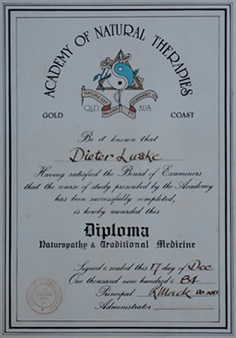 ACADEMY OF NATURAL THERAPIES
QLD AUS
GOLD COAST
Be it known that
Dieter Luske
Having satisfied the Board of Examiners
that the course of study prescribed by the Academy
has been successfully completed,
is hereby awarded this
Diploma
Naturopathy & Traditional Medicine
Signed & sealed this 17 day of Dec.
One thousand nine hundred & 84
Principal
Administrator